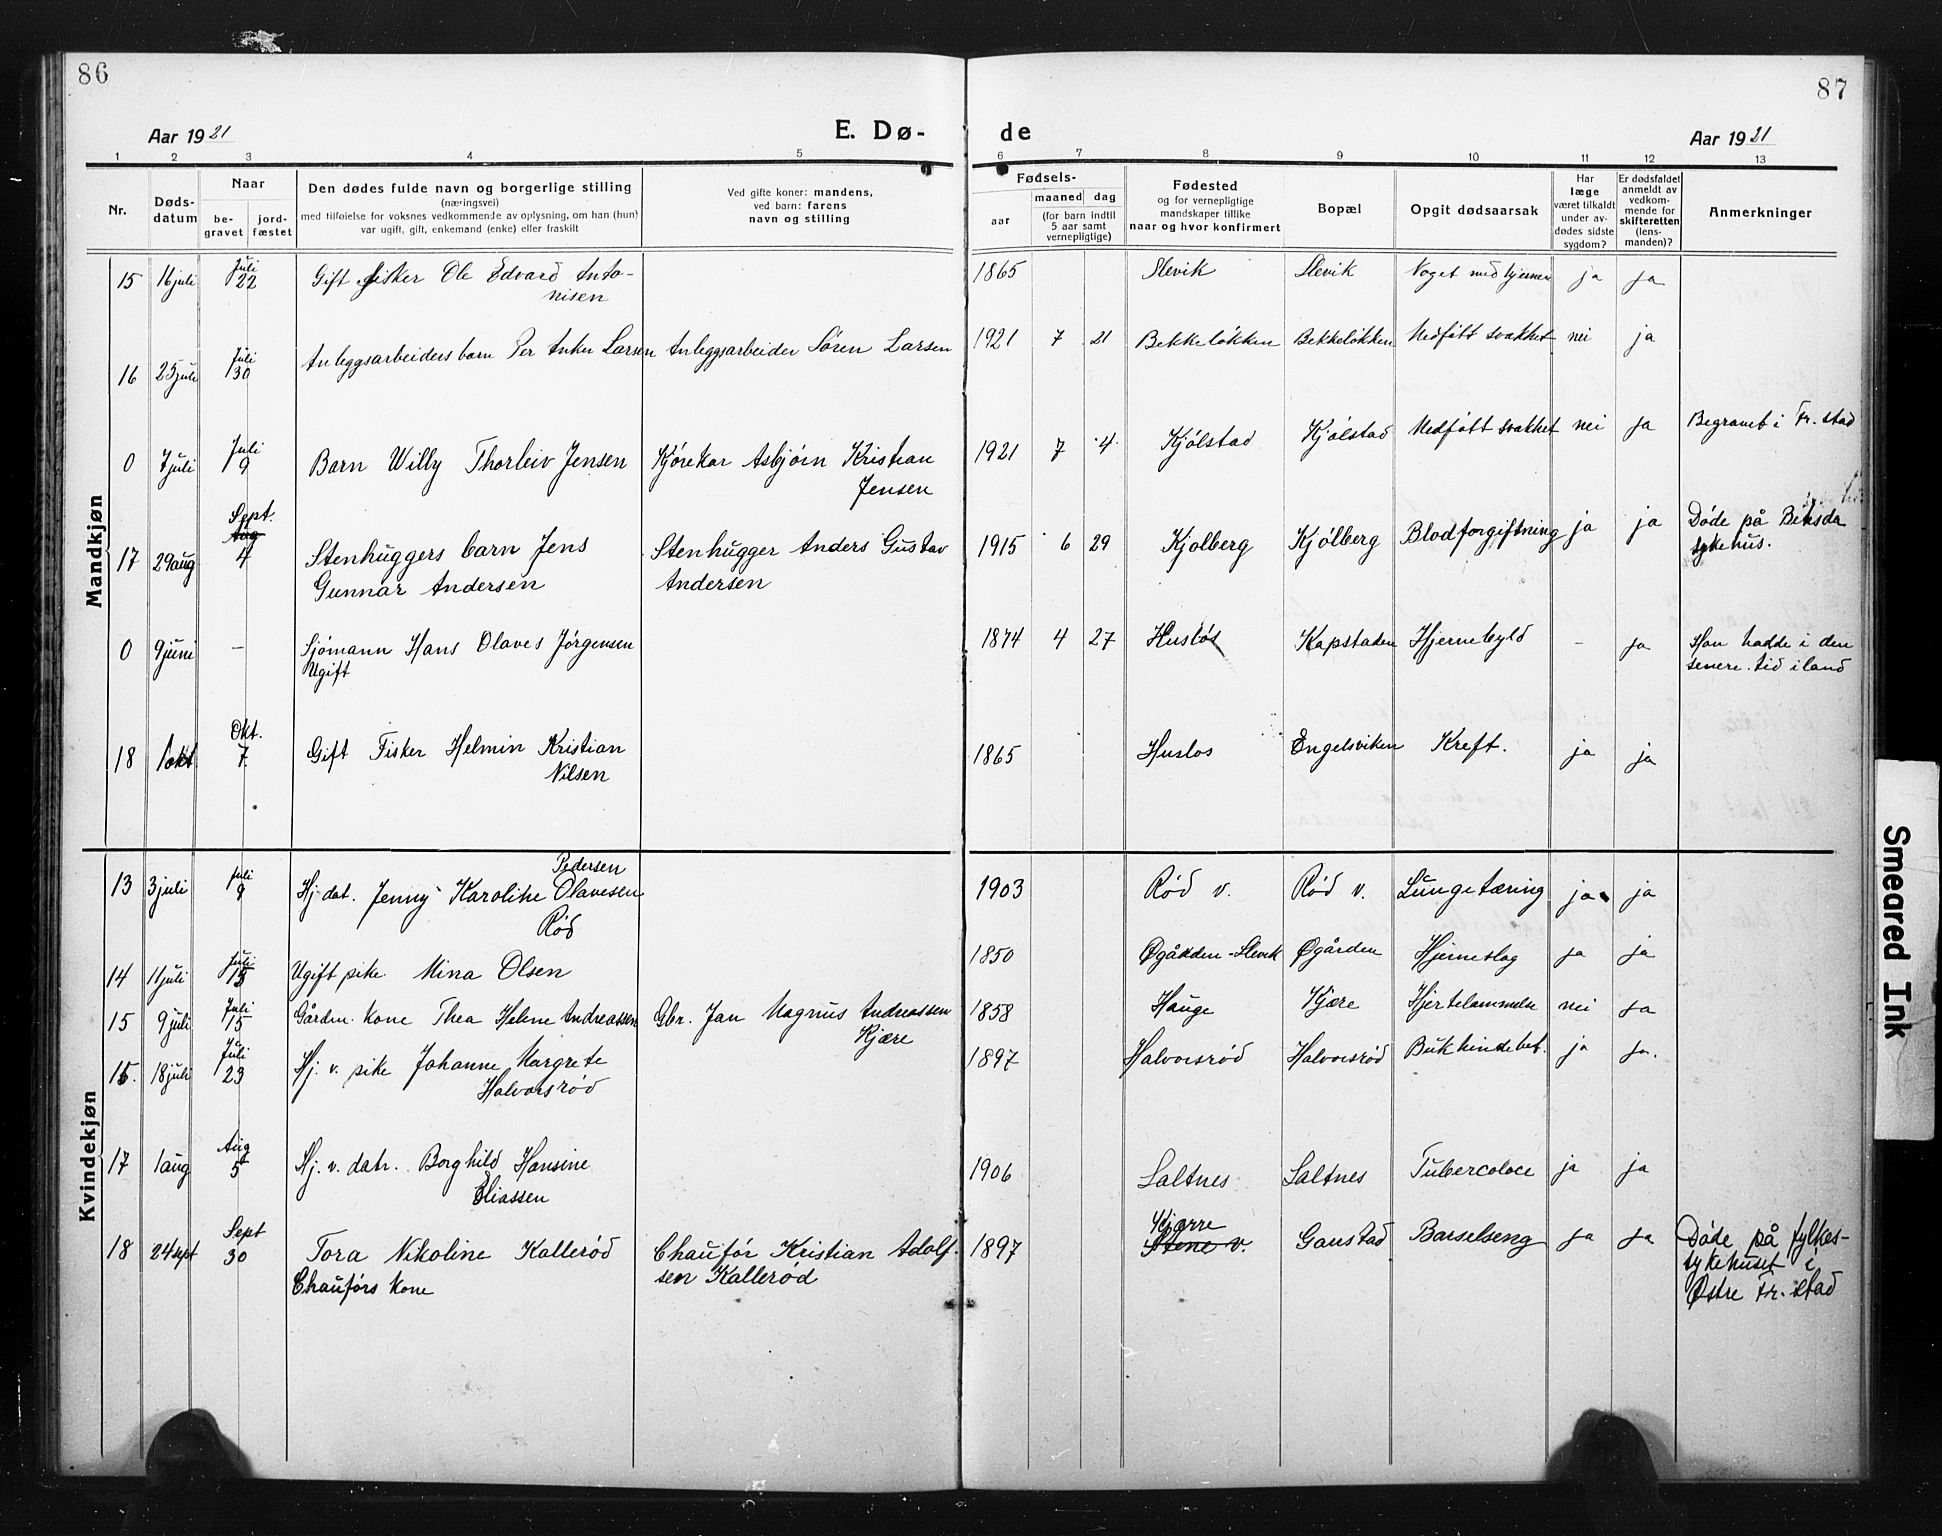 86
87
Aar 1921
E. Dø-
de
Aar 1921
1 2 3 4 5 6 7 8 9 10 11 12 13
Nr.
Døds-
datum
Naar
be-
gravet
jord-
fæstet
Den dødes fulde navn og borgerlige stilling
(næringsvei)
med tilføielse for voksnes vedkommende av oplysning, om han (hun)
var ugift, gift, enkemand (enke) eller fraskilt
Ved gifte koner: mandens,
ved barn: farens
navn og stilling
Fødsels-
aar
maaned
dag
(for barn indtil
5 aar samt
vernepligtige)
Fødested
og for vernepligtige
mandskaper tillike
naar og hvor konfirmert
Bopæl
Opgit dødsaarsak
Har
læge
været tilkaldt
under av-
dødes sidste
sygdom?
Er dødsfaldet
anmeldt av
vedkom-
mende for
skifteretten
(lens-
manden)?
Anmerkninger
Mandkjøn
15 16 juli Juli 22 Gift fisker Ole Edvard Anto-
nisen
1865 Slevik Slevik Noget med hjernen ja ja
16 25 juli Juli 30 Anleggsarbeiders barn Per Anker Larsen Anleggsarbeider Søren Larsen 1921 7 21 Bekkeløkken Bekkeløkken Medfått svakhet nei ja
0 7 juli Juli 9 Barn Willy Thorleiv Jensen Kjørekar Asbjørn Kristian
Jensen
1921 7 4 Kjølstad Kjølstad Medfått svakhet nei ja Begravet i Fr. stad
17 29 aug Sept. Aug 4 Stenhuggers barn Jens
Gunnar Andersen
Stenhugger Anders Gustav
Andersen
1915 6 29 Kjølberg Kjølberg Blodforgiftning ja ja Døde på
sykehus.
0 9 juni – Sjømann Hans Olaves Jørgensen
Ugift
1874 4 27 Husløs Kapstaden Hjernebyld – ja Han hadde i den
senere tid iland
18 1 okt Okt. 7 Gift Fisker Helmin Kristian
Nilsen
1865 Huslos Engelsviken Kreft. ja ja
Kvindekjøn
13 3 juli Juli 9 Hj. dat. Jenny Karoline Pedersen
Olavesen
Rød
1903 Rød v. Rød v. Lungetæring ja ja
14 11 juli Juli 15 Ugift pike Mina Olsen 1850 Øgården-Slevik Øgården Hjerneslag ja ja
15 9 juli Juli 15 Gården. kone Thea Helene Andreassen Gbr. Jan Magnus Andreassen
Kjære
1858 Hauge Kjære Hjertelammelse nei ja
16. 18 juli Juli 23 Hj. v. pike Johanne Margrete
Halvorsrød
1897 Halvorsrød Halvorsrød Bukhindebet. ja ja.
17 1 aug Aug 5 Hj. v. datr. Borghild Hansine
Eliassen
1906 Saltnes Saltnes Tubercoloce ja ja
18 24 sept Sept 30 Tora Nikoline Kallerød
Chauførs kone
Chaufør Kristian Adolf-
sen Kallerød
1897 Kjærre
Stene v. Gaustad Barselseng ja ja Døde på fylkes-
sykehuset i
Østre Fr. stad
Smeared Ink